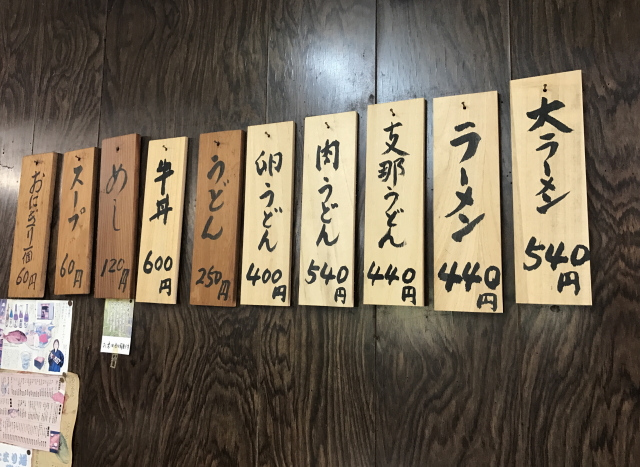 大ラーメン
540円
ラーメン
440円
支那うどん
440円
肉うどん
540円
卵うどん
400円
うどん
250円
牛丼
600円
めし
120円
スープ
60円
おにぎり一個
60円